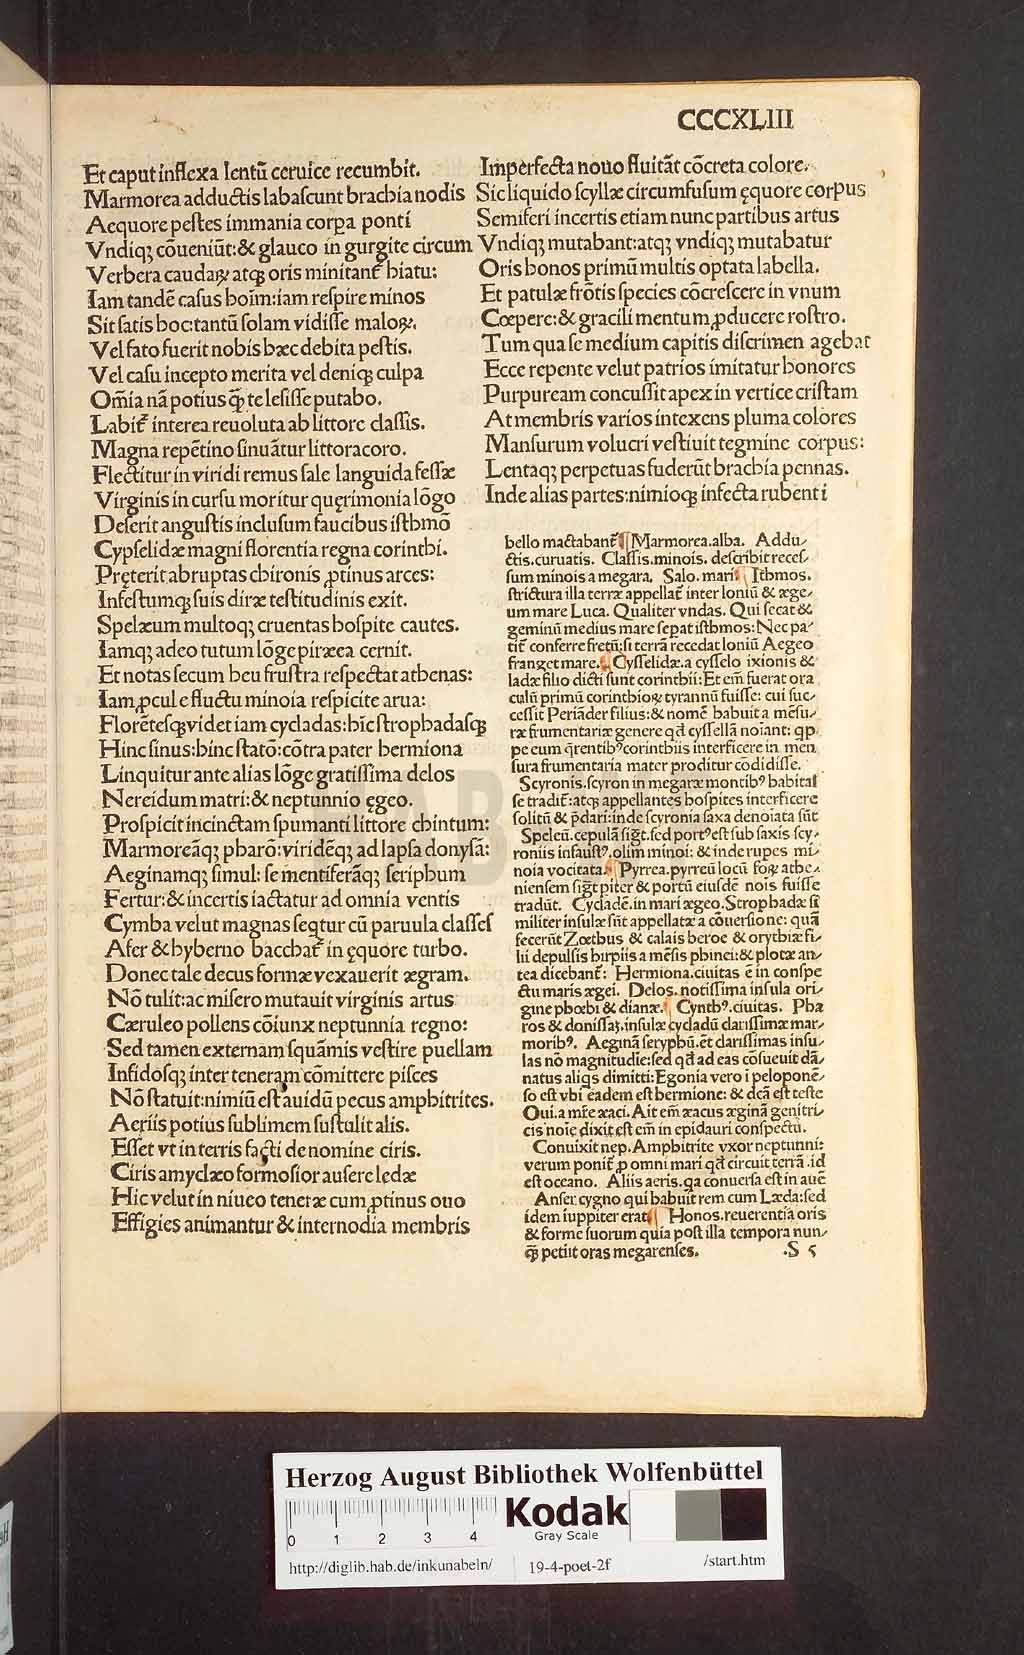 CCCXLIII
Et caput inflexa lentū ceruice recumbit.
Marmorea adductis labascunt brachia nodis
Aequore pestes immania corpa ponti
Vndiqꝫ cōueniūt:& glauco in gurgite circum
Verbera caudaꝝ atqꝫ oris minitant᷑ hiatu:
Iam tandē casus hoim:iam respire minos
Sit satis hoc:tantū solam vidisse maloꝝ.
Vel fato fuerit nobis hæc debita pestis.
Vel casu incepto merita vel deniqꝫ culpa
Om̄ia nā potius q̄ꝫ te lesisse putabo.
Labit᷑ interea reuoluta ab littore classis.
Magna repētino sinuātur littoracoro.
Flectitur in viridi remus sale languida fessæ
Virginis in cursu moritur quęrimonia lōgo
Deserit angustis inclusum faucibus isthmō
Cypselidæ magni florentia regna corinthi.
Pręterit abruptas chironis ꝓtinus arces:
Infestumqꝫ suis diræ testitudinis exit.
Spelæum multoqꝫ cruentas hospite cautes.
Iamqꝫ adeo tutum lōge piræea cernit.
Et notas secum heu frustra respectat athenas:
Iam ꝓcul e fluctu minoia respicite arua:
Florētesqꝫ videt iam cycladas:hīc strophadasqꝫ
Hinc sinus:hinc statō:cōtra pater hermiona
Linquitur ante alias lōge gratissima delos
Nereidum matri:& neptunnio ęgeo.
Prospicit incinctam spumanti littore chintum:
Marmoreāqꝫ pharō:viridēqꝫ ad lapsa donysā:
Aeginamqꝫ simul: se mentiferāqꝫ seriphum
Fertur:& incertis iactatur ad omnia ventis
Cymba velut magnas seq̄tur cū paruula classes
Afer & hyberno bacchat᷑ in ęquore turbo.
Donec tale decus formæ vexauerit ægram.
Nō tulit:ac misero mutauit virginis artus
Cæruleo pollens cōiunx neptunnia regno:
Sed tamen externam squāmis vestire puellam
Infidosqꝫ inter teneram cōmittere pisces
Nō statuit:nimiū est auidū pecus amphitrites.
Aeriis potius sublimem sustulit alis.
Esset vt in terris facti de nomine ciris.
Ciris amyclæo formosior ausere ledæ
Hic velut in niueo teneræ cum ꝓtinus ouo
Effigies animantur & internodia membris
Imperfecta nouo fluitāt cōcreta colore.
Sic liquido scyllæ circumfusum ęquore corpus
Semiferi incertis etiam nunc partibus artus
Vndiqꝫ mutabant:atqꝫ vndiqꝫ mutabatur
Oris honos primū multis optata labella.
Et patulæ frōtis species cōcrescere in vnum
Cœpere:& gracili mentum ꝓducere rostro.
Tum qua se medium capitis discrimen agebat
Ecce repente velut patrios imitatur honores
Purpuream concussit apex in vertice cristam
At membris varios intexens pluma colores
Mansurum volucri vestiuit tegmine corpus:
Lentaqꝫ perpetuas fuderūt brachia pennas.
Inde alias partes:nimioqꝫ infecta rubenti
bello mactabant᷑ ¶ Marmorea.alba. Addu-
ctis.curuatis. Classis.minois. describit reces-
sum minois a megara. Salo. mari ¶ Ithmos.
strictura illa terræ appellat᷑ inter Ioniū & æge-
um mare Luca. Qualiter vndas. Qui secat &
geminū medius mare sepat isthmos: Nec pa-
tit᷑ conferre fretū:si terrā recedat Ioniū Aegeo
franget mare. ¶ Cysselidæ.a cysselo ixionis &
ladæ filio dicti sunt corinthii: Et em̄ fuerat ora
culū primū corinthioꝝ tyrannū fuisse: cui suc-
cessit Periāder filius:& nomē habuit a mēsu-
ræ frumentariæ genere qđ cyssellā noīant: qp
pe eum q̄rentibꝰ corinthiis interficere in men
sura frumentaria mater proditur cōdidisse.
Scyronis.scyron in megaræ montibꝰ habitas
se tradit᷑:atqꝫ appellantes hospites interficere
solitū & p̄dari:inde scyronia saxa denoīata sūt
Speleū.cepulā sigt᷑.sed portꝰ est sub saxis scy-
roniis infaustꝰ.olim minoi: & inde rupes mi-
noia vocitata. ¶ Pyrrea.pyrreū locū foꝝ athe-
niensem sigt᷑ piter & portū eiusdē nois fuisse
tradūt. Cycladē.in mari ægeo. Strophadæ si
militer insulæ sūt appellatæ a cōuersione: quā
fecerūt Zœthus & calais boreæ & orythiæ fi-
lii depulsis hirpiis a mēsis phinei:& plotæ an-
tea dicebant᷑: Hermiona.ciuitas ē in conspe
ctu maris ægei. Delos.notissima insula ori-
gine phœbi & dianæ. ¶ Cynthꝰ.ciuitas. Pha
ros & donissaꝫ.insulæ cycladū clarissimæ mar-
moribꝰ. Aeginā seryphū.et clarissimas insu-
las nō magnitudie:sed qđ ad eas cōsueuit dā-
natus aliqs dimitti: Egonia vero i peloponē-
so est vbi eadem est hermione: & dcā est teste
Oui.a mr̄e æaci. Ait em̄ æacus æginā genitri-
cis noie dixit est em̄ in epidauri conspectu.
Conuixit nep. Amphitrite vxor neptunni:
verum ponit᷑ ꝓ omni mari qđ circuit terrā.id
est oceano. Aliis aeris.qa conuersa est in auē
Anser cygno qui habuit rem cum Læda:sed
idem iuppiter erat ¶ Honos.reuerentia oris
& forme suorum quia post illa tempora nun-
q̄ꝫ petiit oras megarenses. .S 5
HAB
Herzog August Bibliothek Wolfenbüttel
0 1 2 3 4
Kodak
Gray Scale
http://diglib.hab.de/inkunabeln/ 19-4-poet-2f /start.htm